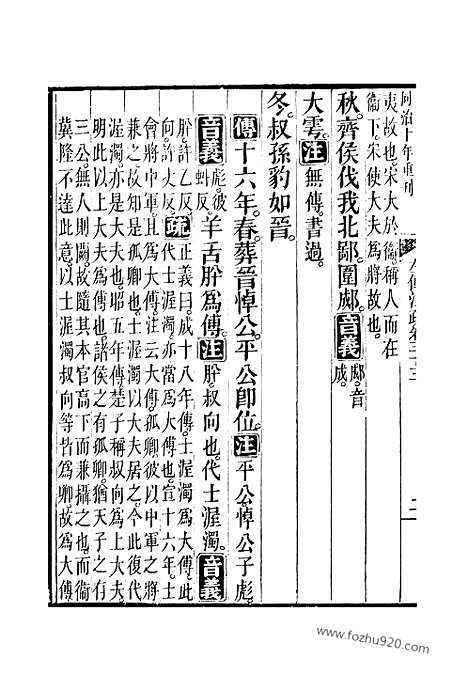 同治十年重刊
左傳注疏卷三十三
二
夷故也。宋大於衞。稱人而在
衞下。宋使大夫爲將故也。
秋。齊侯伐我北鄙。圍郕。音義郕。音
成。
大雩。注無傳書過。
冬。叔孫豹如晉。
傳十六年。春。葬晉悼公。平公卽位。注平公悼公子彪。
音義彪。彼
虯反。羊舌肸爲傅。注肸。叔向也。代士渥濁。音義
肸。許乙反。
向。許丈反。疏正義曰。成十八年傳。士渥濁爲大傅。此
代士渥濁。亦當爲大傅也。宣十六年。士
會將中軍。且爲大傅。注云大傅。孤卿。彼以中軍之將
兼之。故知是孤卿也。士渥濁以大夫居之。今此復代
渥濁。亦是大夫也。昭五年傳。楚子稱叔向爲上大夫。
明此以上大夫爲大傅也。諸侯之有孤卿。猶天子之有
三公。無人則闕。故隨其本官高下而兼攝之也。而衞
冀隆不達此意。以士渥濁叔向等皆爲卿。故爲大傅
www.fozhu920.com